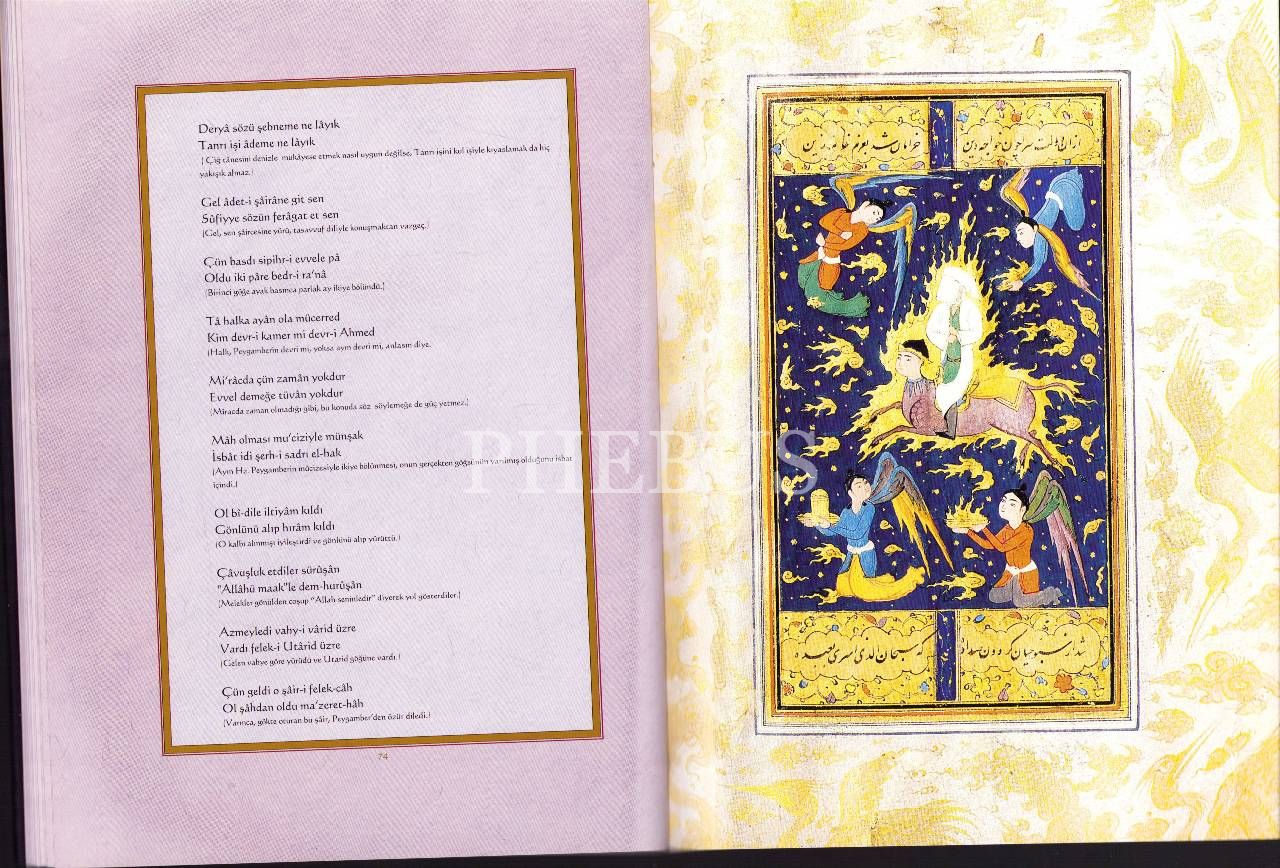 Deryâ sözü şebneme ne lâyık
Tanrı işi âdeme ne lâyık
[Çiğ tânesini denizle mukâyese etmek nasıl uygun değilse, Tanrı işini kul işiyle kıyaslamak da hiç
yakışık almaz.]
Gel âdet-i şâirâne git sen
Sûfiyye sözün ferâgat et sen
[Gel, sen şâircesine yürü, tasavvuf diliyle konuşmaktan vazgeç.]
Çün basdı sipihr-i evvele pâ
Oldu iki pâre bedr-i ra'nâ
[Birinci göğe ayak basınca parlak ay ikiye bölündü.]
Tâ halka ayân ola mücerred
Kim devr-i kamer mi devr-i Ahmed
[Halk, Peygamberin devri mi, yoksa ayın devri mi, anlasın diye.
Mi'râcda çün zamân yokdur
Evvel demeğe tüvân yokdur
[Miracda zaman olmadığı gibi, bu konuda söz söylemeğe de güç yetmez.]
Mâh olması mu'ciziyle münşak
İsbât idi şerh-i sadrı el-hak
[Ayın Hz. Peygamberin mûcizesiyle ikiye bölünmesi, onun gerçekten göğsünün yarılmış olduğunu isbat
içindi.]
Ol bî-dile iltiyâm kıldı
Gönlünü alıp hırâm kıldı
[O kalbi alınmışı iyileştirdi ve gönlünü alıp yürüttü.]
Çâvuşluk etdiler sürûşân
"Allâhü maak"le dem-hurûşân
[Melekler gönülden coşup "Allah seninledir" diyerek yol gösterdiler.]
Azmeyledi vahy-i vârid üzre
Vardı felek-i Utârid üzre
[Gelen vahye göre yürüdü ve Utarid göğüne vardı.]
Çün geldi o şâir-i felek-câh
Ol şâhdan oldu ma'zeret-hâh
[Varınca, gökte oturan bu şâir, Peygamber'den özür diledi.]
74
PHEBUS
ازان دولت سرا چون خواجه دین
خرامان شد بعزم خانه زین
شد از سبوحیان گردون صدا
که سبحان الذی اسری بعبده